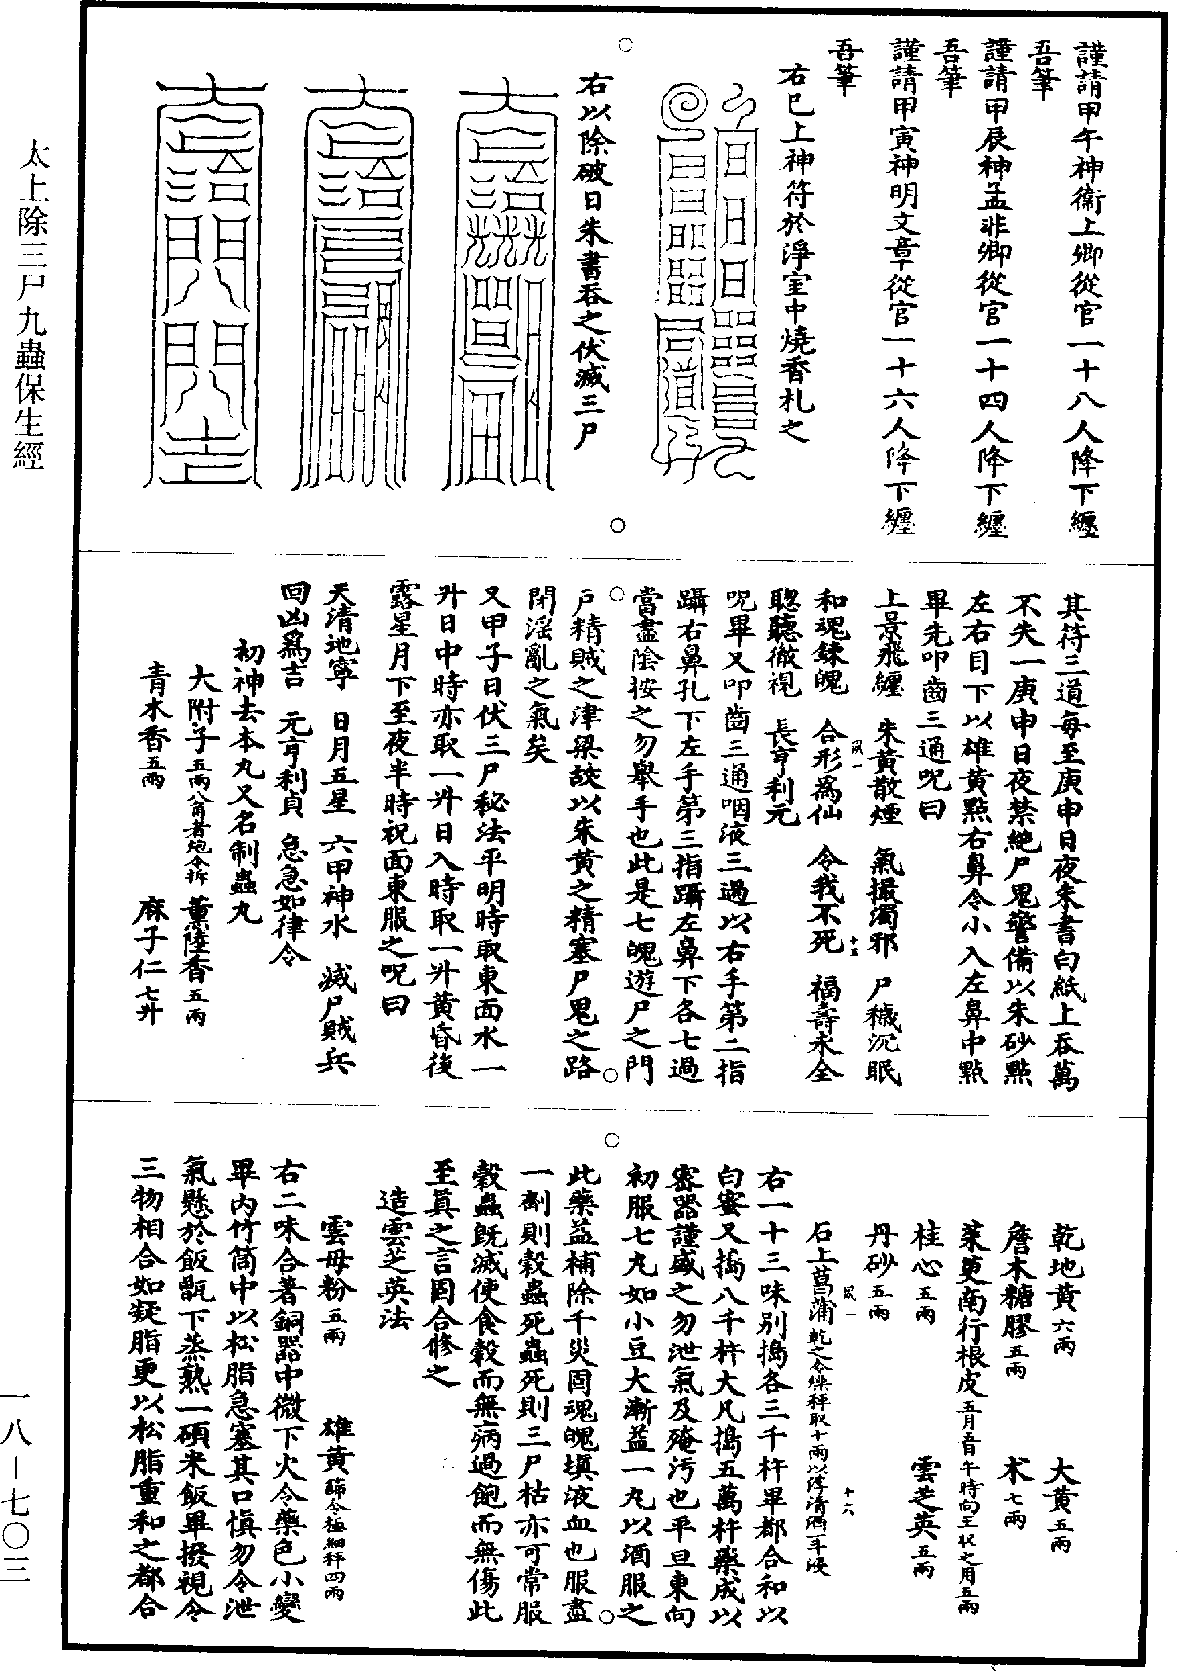 謹請甲午神衞上卿從官一十八人降下纏
吾筆
謹請甲辰神孟非卿從官一十四人降下纏
吾筆
謹請甲寅神明文章從官一十六人降下纏
吾筆
右已上神符於淨室中燒香札之
右以除破日朱書吞之伏滅三尸
其符三道每至庚申日夜朱書白紙上吞萬
不失一庚申日夜禁絶尸鬼警備以朱砂點
左右目下以雄黃點右鼻令小入左鼻中點
畢先叩齒三通呪曰
上景飛纏 朱黃散煙 氣撮濁邪 尸穢沉眠
和魂鍊魄 合形爲仙 令我不死 福壽永全
聰聽徹視 長亨利元
呪畢又叩齒三通咽液三過以右手第二指
躡右鼻孔下左手第三指躡左鼻下各七過
當盡陰按之勿舉手也此是七魄遊尸之門
戶精賊之津梁故以朱黃之精塞尸鬼之路
閉淫亂之氣矣
又甲子日伏三尸秘法平明時取東面水一
升日中時亦取一升日入時取一升黃昏後
露星月下至夜半時祝面東服之呪曰
天清地寧 日月五星 六甲神水 滅尸賊兵
回凶爲吉 元亨利貞 急急如律令
初神去本丸又名制蟲丸
大附子五兩八角者炮令拆 薰陸香五兩
青木香五兩 麻子仁七升
乾地黃六兩 大黃五兩
詹木糖膠五兩 朮七兩
茱更南行根皮五月五日午時向王伐之用五兩
桂心五兩 雲芝英五兩
丹砂五兩
石上菖蒲乾之令燥秤取十兩以淳清酒一斗浸
右一十三味別搗各三千杵畢都合和以
白蜜又搗八千杵大凡搗五萬杵藥成以
密器謹盛之勿泄氣及殗污也平旦東向
初服七丸如小豆大漸益一丸以酒服之
此藥益補除千災固魂魄塡液血也服盡
一劑則穀蟲死蟲死則三尸枯亦可常服
穀蟲旣滅使食穀而無病過飽而無傷此
至眞之言固合修之
造雲芝英法
雲母粉五兩 雄黃篩令極細秤四兩
右二味合著銅器中微下火令藥色小變
畢內竹筒中以松脂急塞其口愼勿令泄
氣懸於飯甑下蒸熟一碩米飯畢撥視令
三物相合如凝脂更以松脂重和之都合
太上除三尸九蟲保生經
一八—七〇三